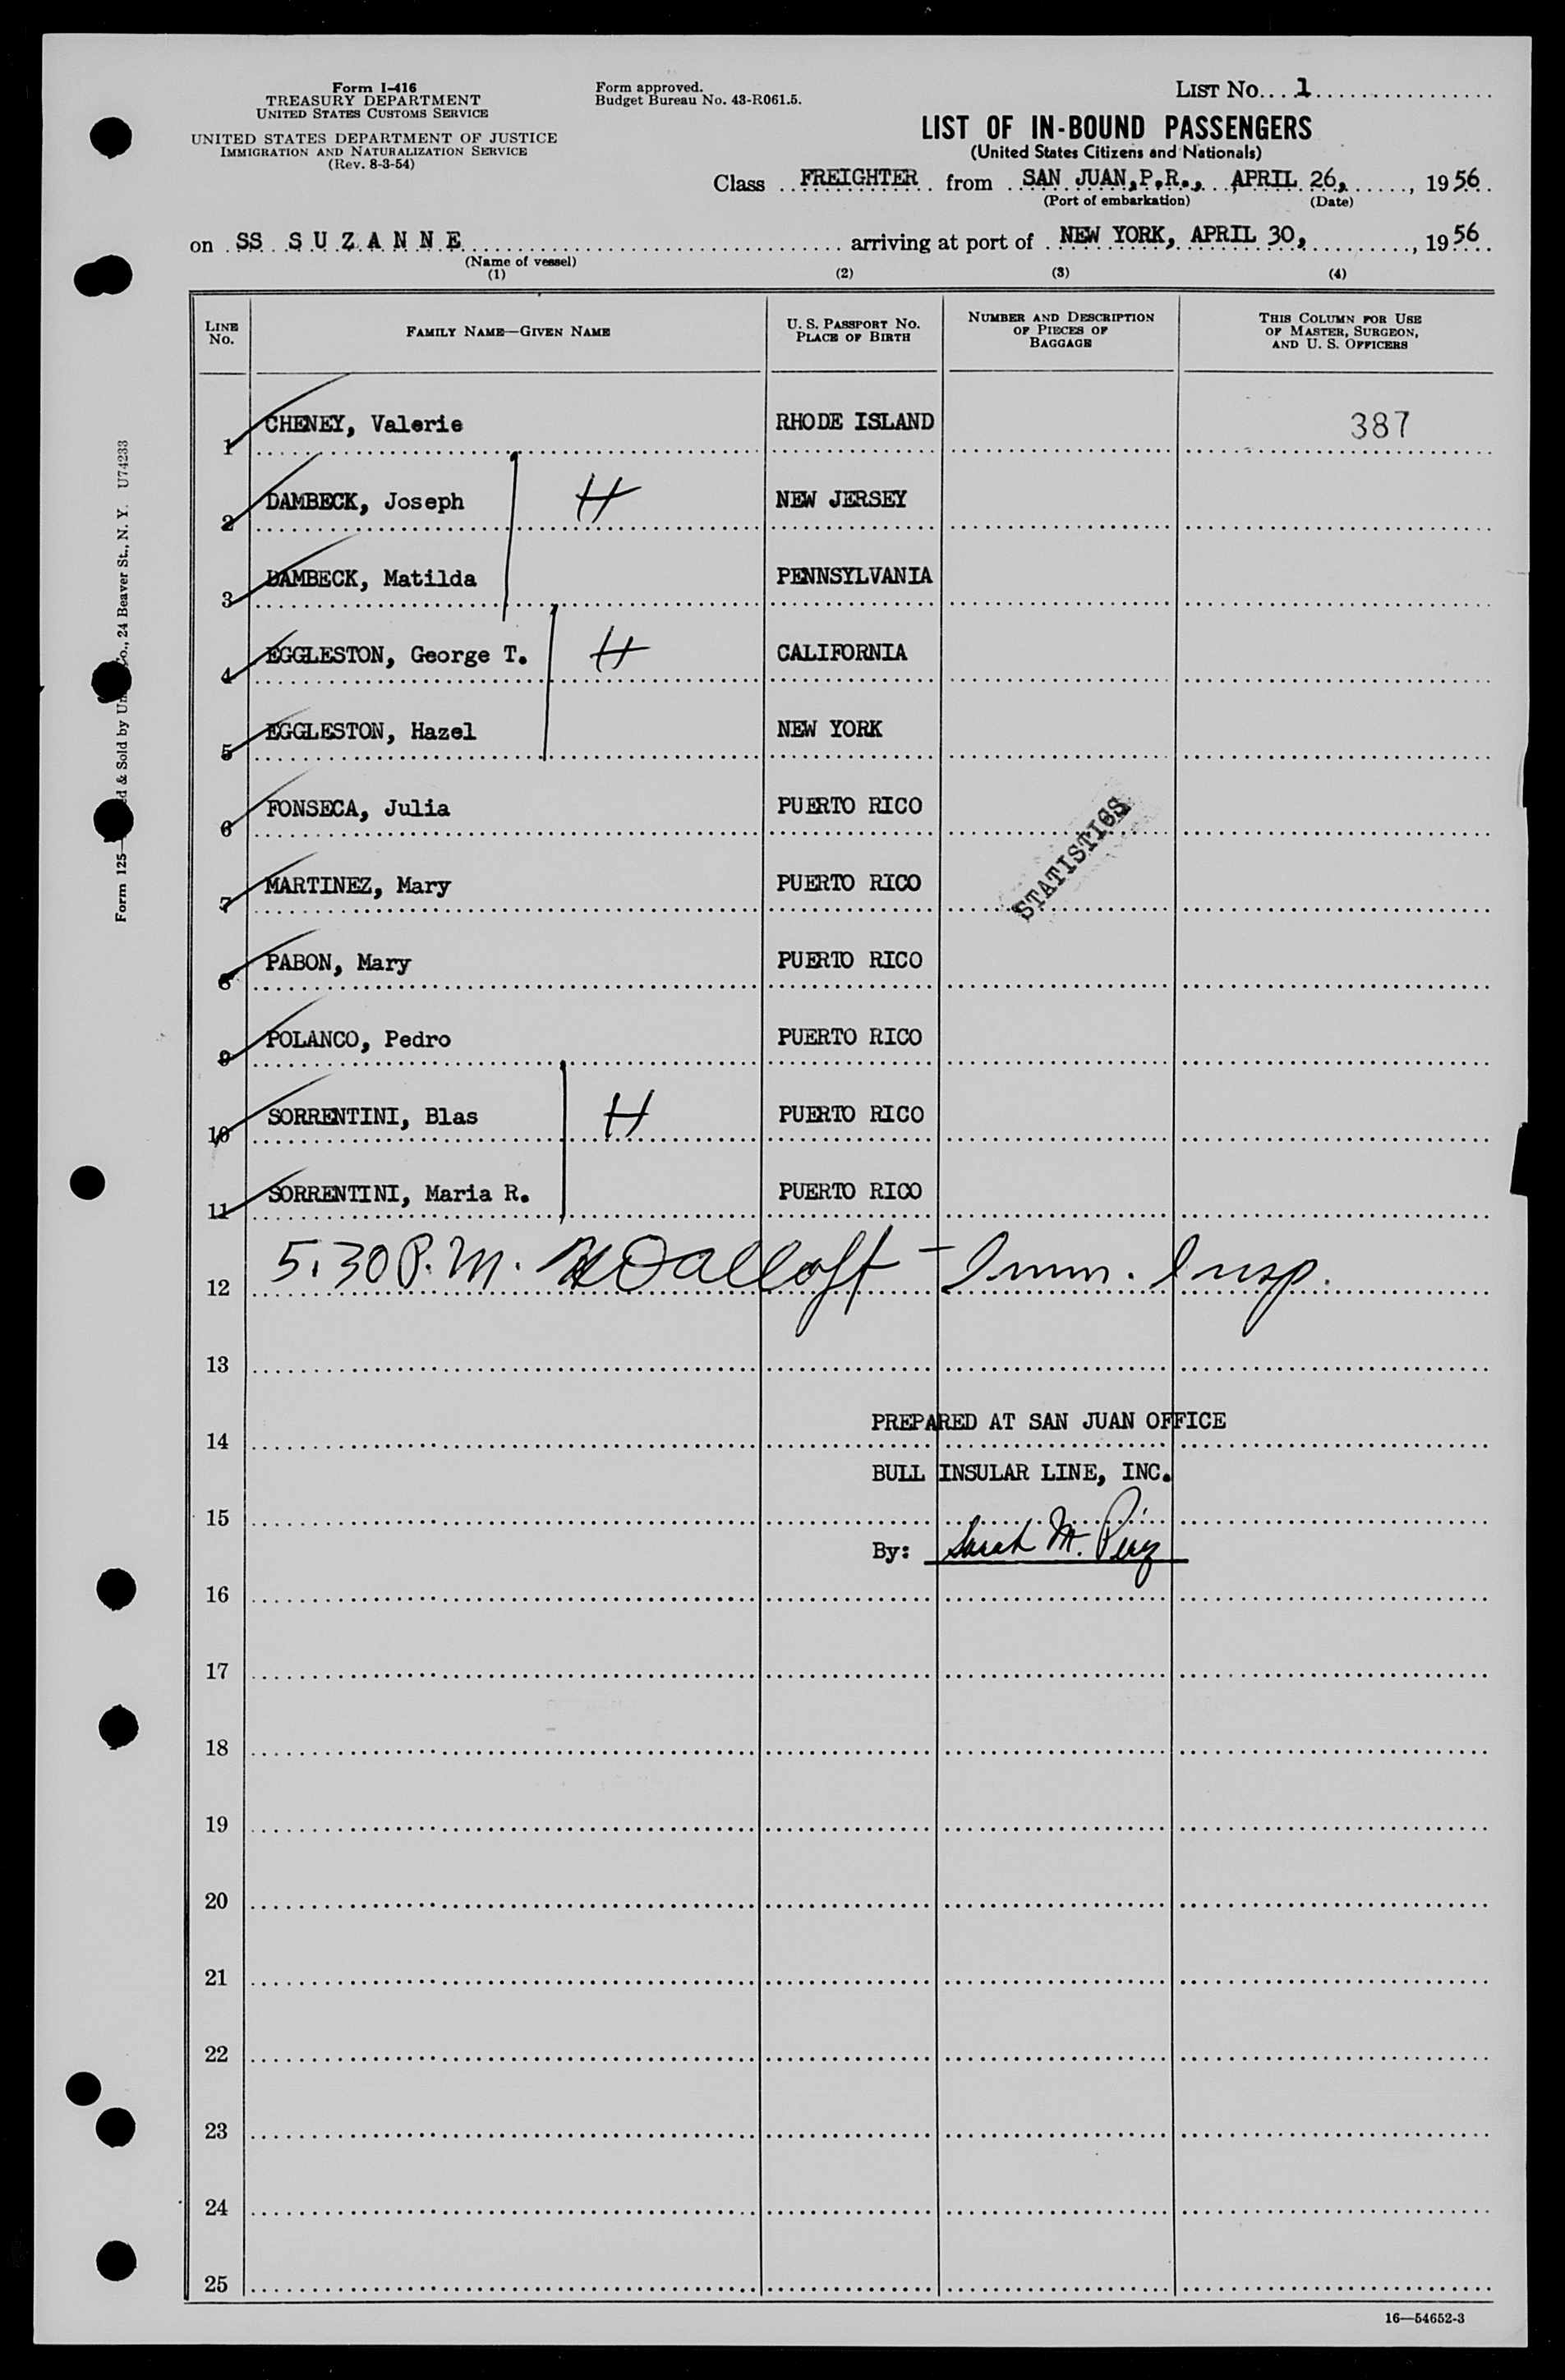 Form I-416
TREASURY DEPARTMENT
UNITED STATES CUSTOMS SERVICE
UNITED STATES DEPARTMENT OF JUSTICE
IMMIGRATION AND NATURALIZATION SERVICE
(Rev. 8-3-54)
Form approved.
Budget Bureau No. 43-R061.5.
LIST No. 1
LIST OF IN-BOUND PASSENGERS
(United States Citizens and Nationals)
Class FREIGHTER from SAN JUAN, P.R., APRIL 26, 1956
(Port of embarkation) (Date)
on SS SUZANNE arriving at port of NEW YORK, APRIL 30, 1956
(Name of vessel)
(1) (2) (3) (4)
LINE No. FAMILY NAME—GIVEN NAME U. S. PASSPORT NO. PLACE OF BIRTH NUMBER AND DESCRIPTION OF PIECES OF BAGGAGE THIS COLUMN FOR USE OF MASTER, SURGEON, AND U. S. OFFICERS
1 CHENEY, Valerie RHODE ISLAND 387
2 DAMBECK, Joseph H NEW JERSEY
3 DAMBECK, Matilda PENNSYLVANIA
4 EGGLESTON, George T. H CALIFORNIA
5 EGGLESTON, Hazel NEW YORK
6 FONSECA, Julia PUERTO RICO
STATISTICS
7 MARTINEZ, Mary PUERTO RICO
8 PABON, Mary PUERTO RICO
9 POLANCO, Pedro PUERTO RICO
10 SORRENTINI, Blas H PUERTO RICO
11 SORRENTINI, Maria R. PUERTO RICO
12 5:30 P.M. - Imm. Insp.
13
PREPARED AT SAN JUAN OFFICE
14
BULL INSULAR LINE, INC.
15
By: Sarah M. Pérez
16
17
18
19
20
21
22
23
24
25
16—54652-3
Form 125— d & Sold by Co., 24 Beaver St., N. Y. U74233